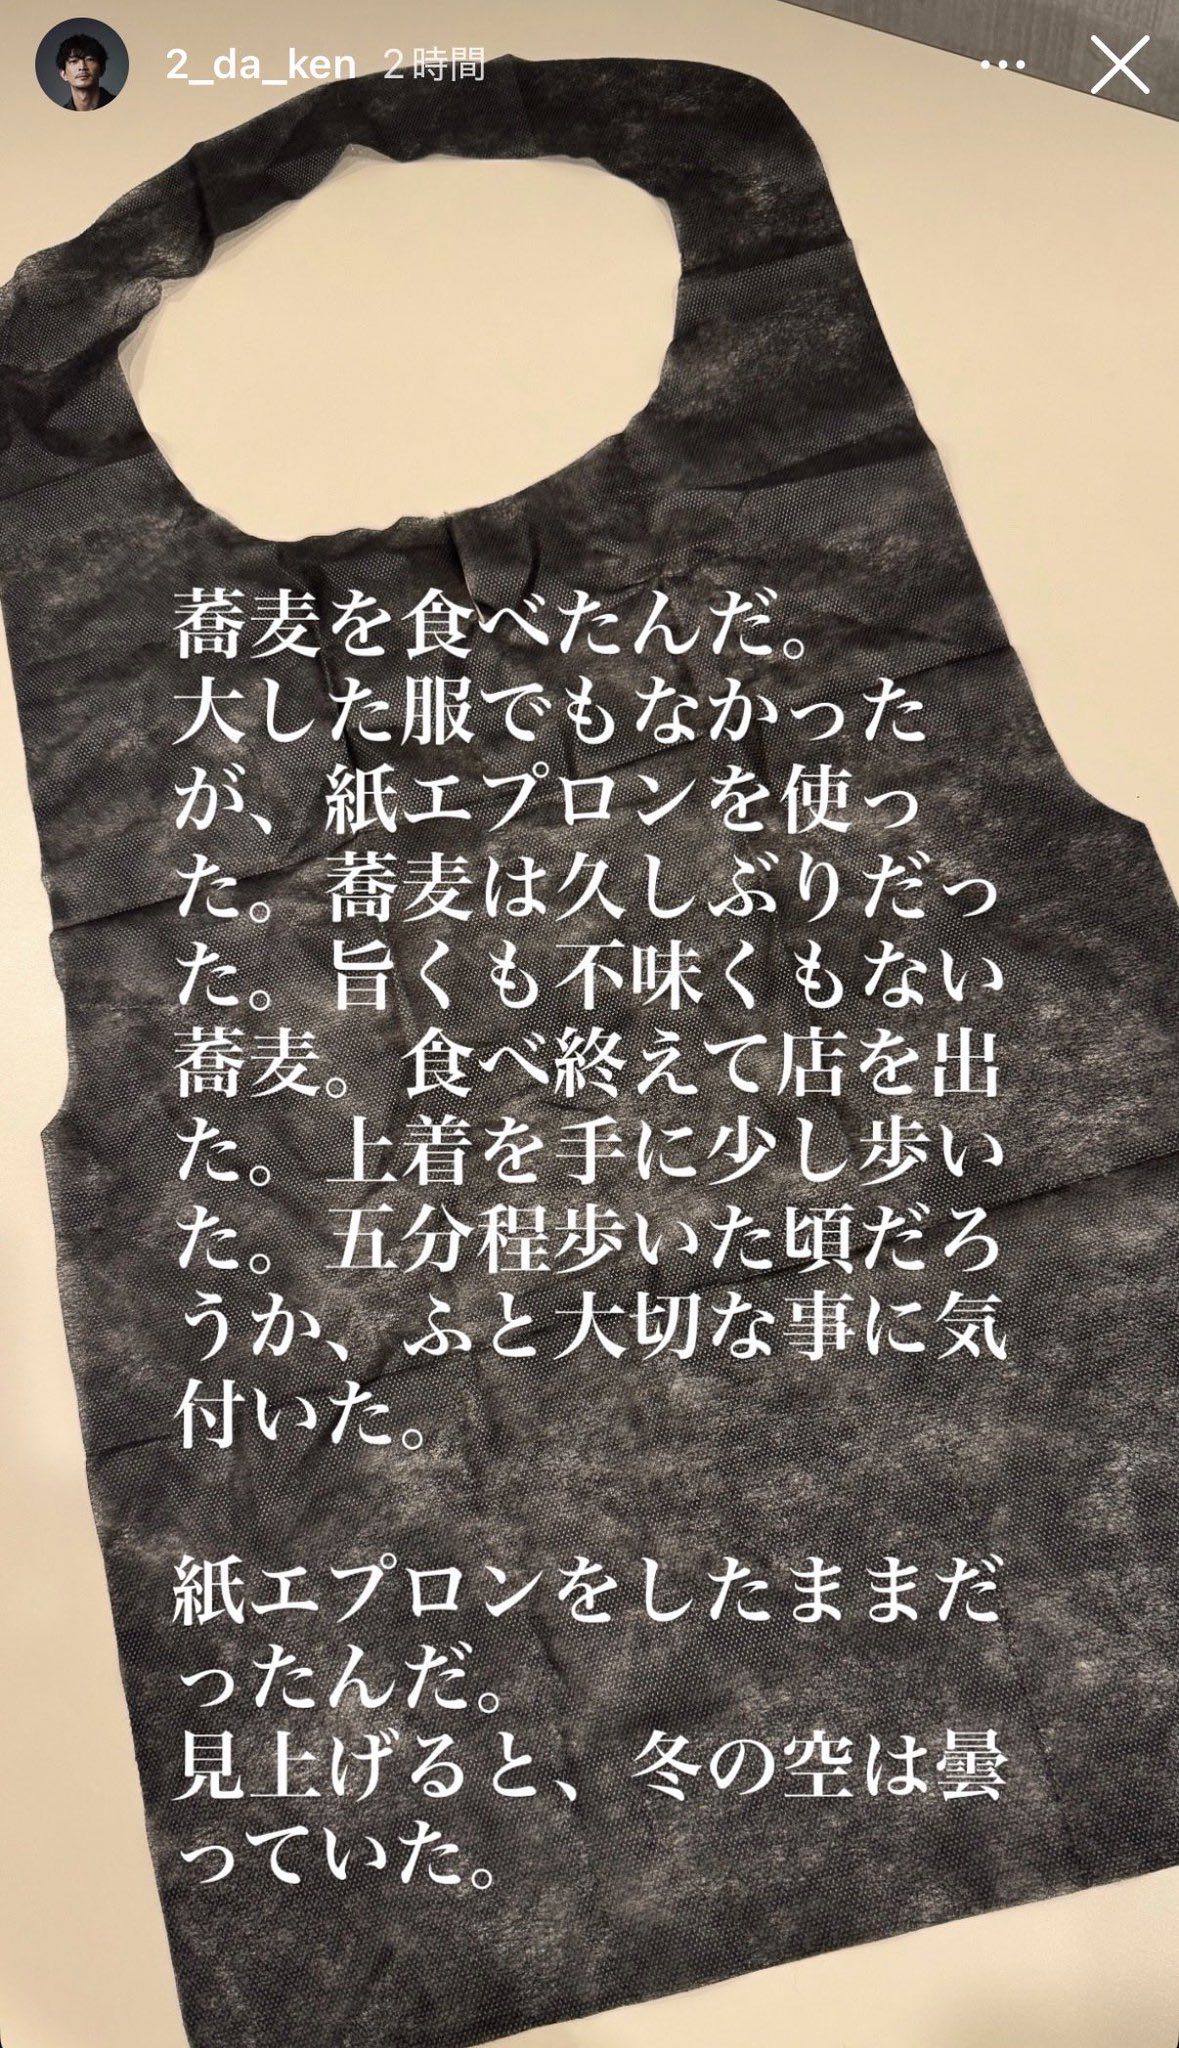 2_da_ken 2時間
蕎麦を食べたんだ。
大した服でもなかった
が、紙エプロンを使っ
た。蕎麦は久しぶりだっ
た。旨くも不味くもない
蕎麦。食べ終えて店を出
た。上着を手に少し歩い
た。五分程歩いた頃だろ
うか、ふと大切な事に気
付いた。
紙エプロンをしたままだ
ったんだ。
見上げると、冬の空は曇
っていた。